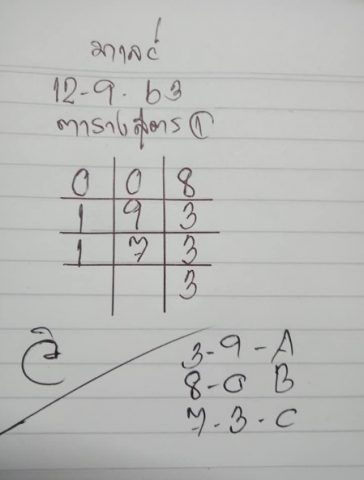 มาเลย์
12-9-63
ตารางสูตร ①
0 0 8
1 9 3
1 7 3
3
3-9-A
8-0 B
7-3-C